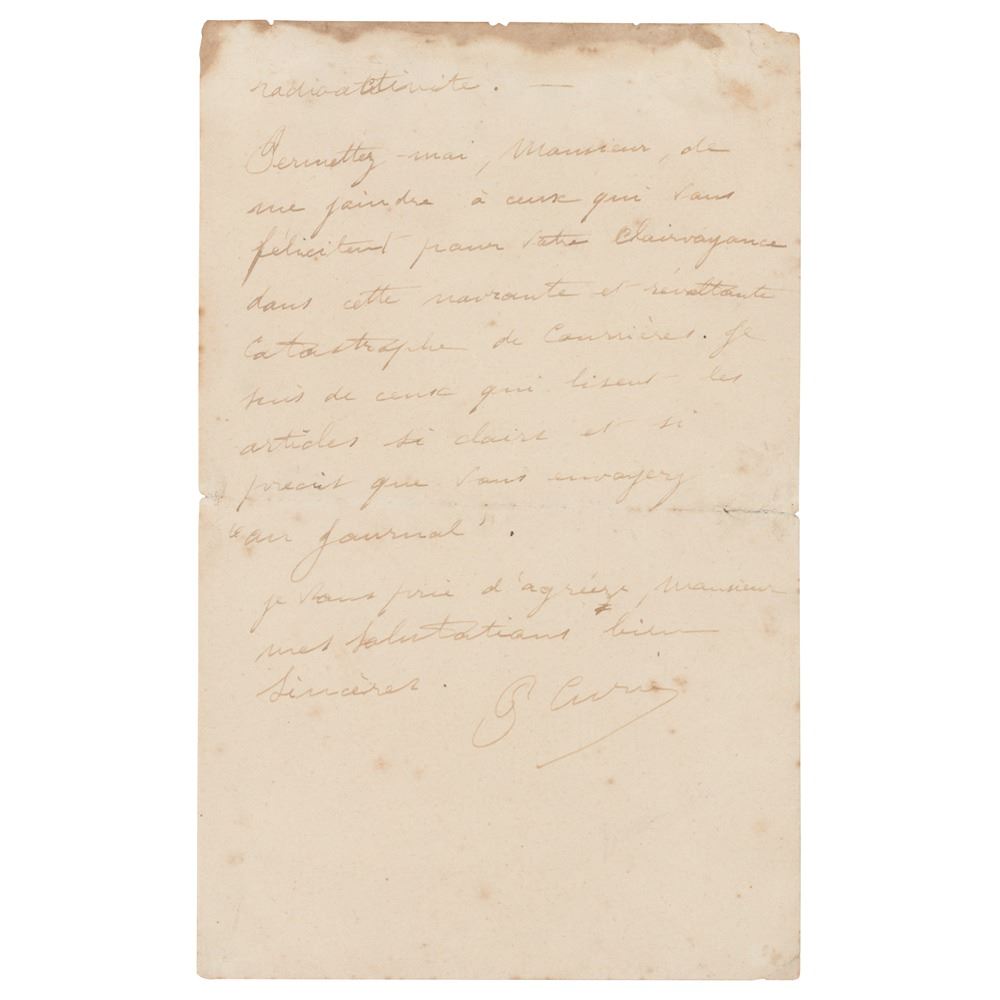 radioactivité. —
Permettez-moi, Monsieur, de
me joindre à ceux qui vous
félicitent pour votre clairvoyance
dans cette navrante et révoltante
catastrophe de Courrières. Je
suis de ceux qui lisent les
articles si clairs et si
précis que vous envoyez
au Journal.
je vous prie d'agréer, Monsieur
mes salutations bien
sincères.
P Curie